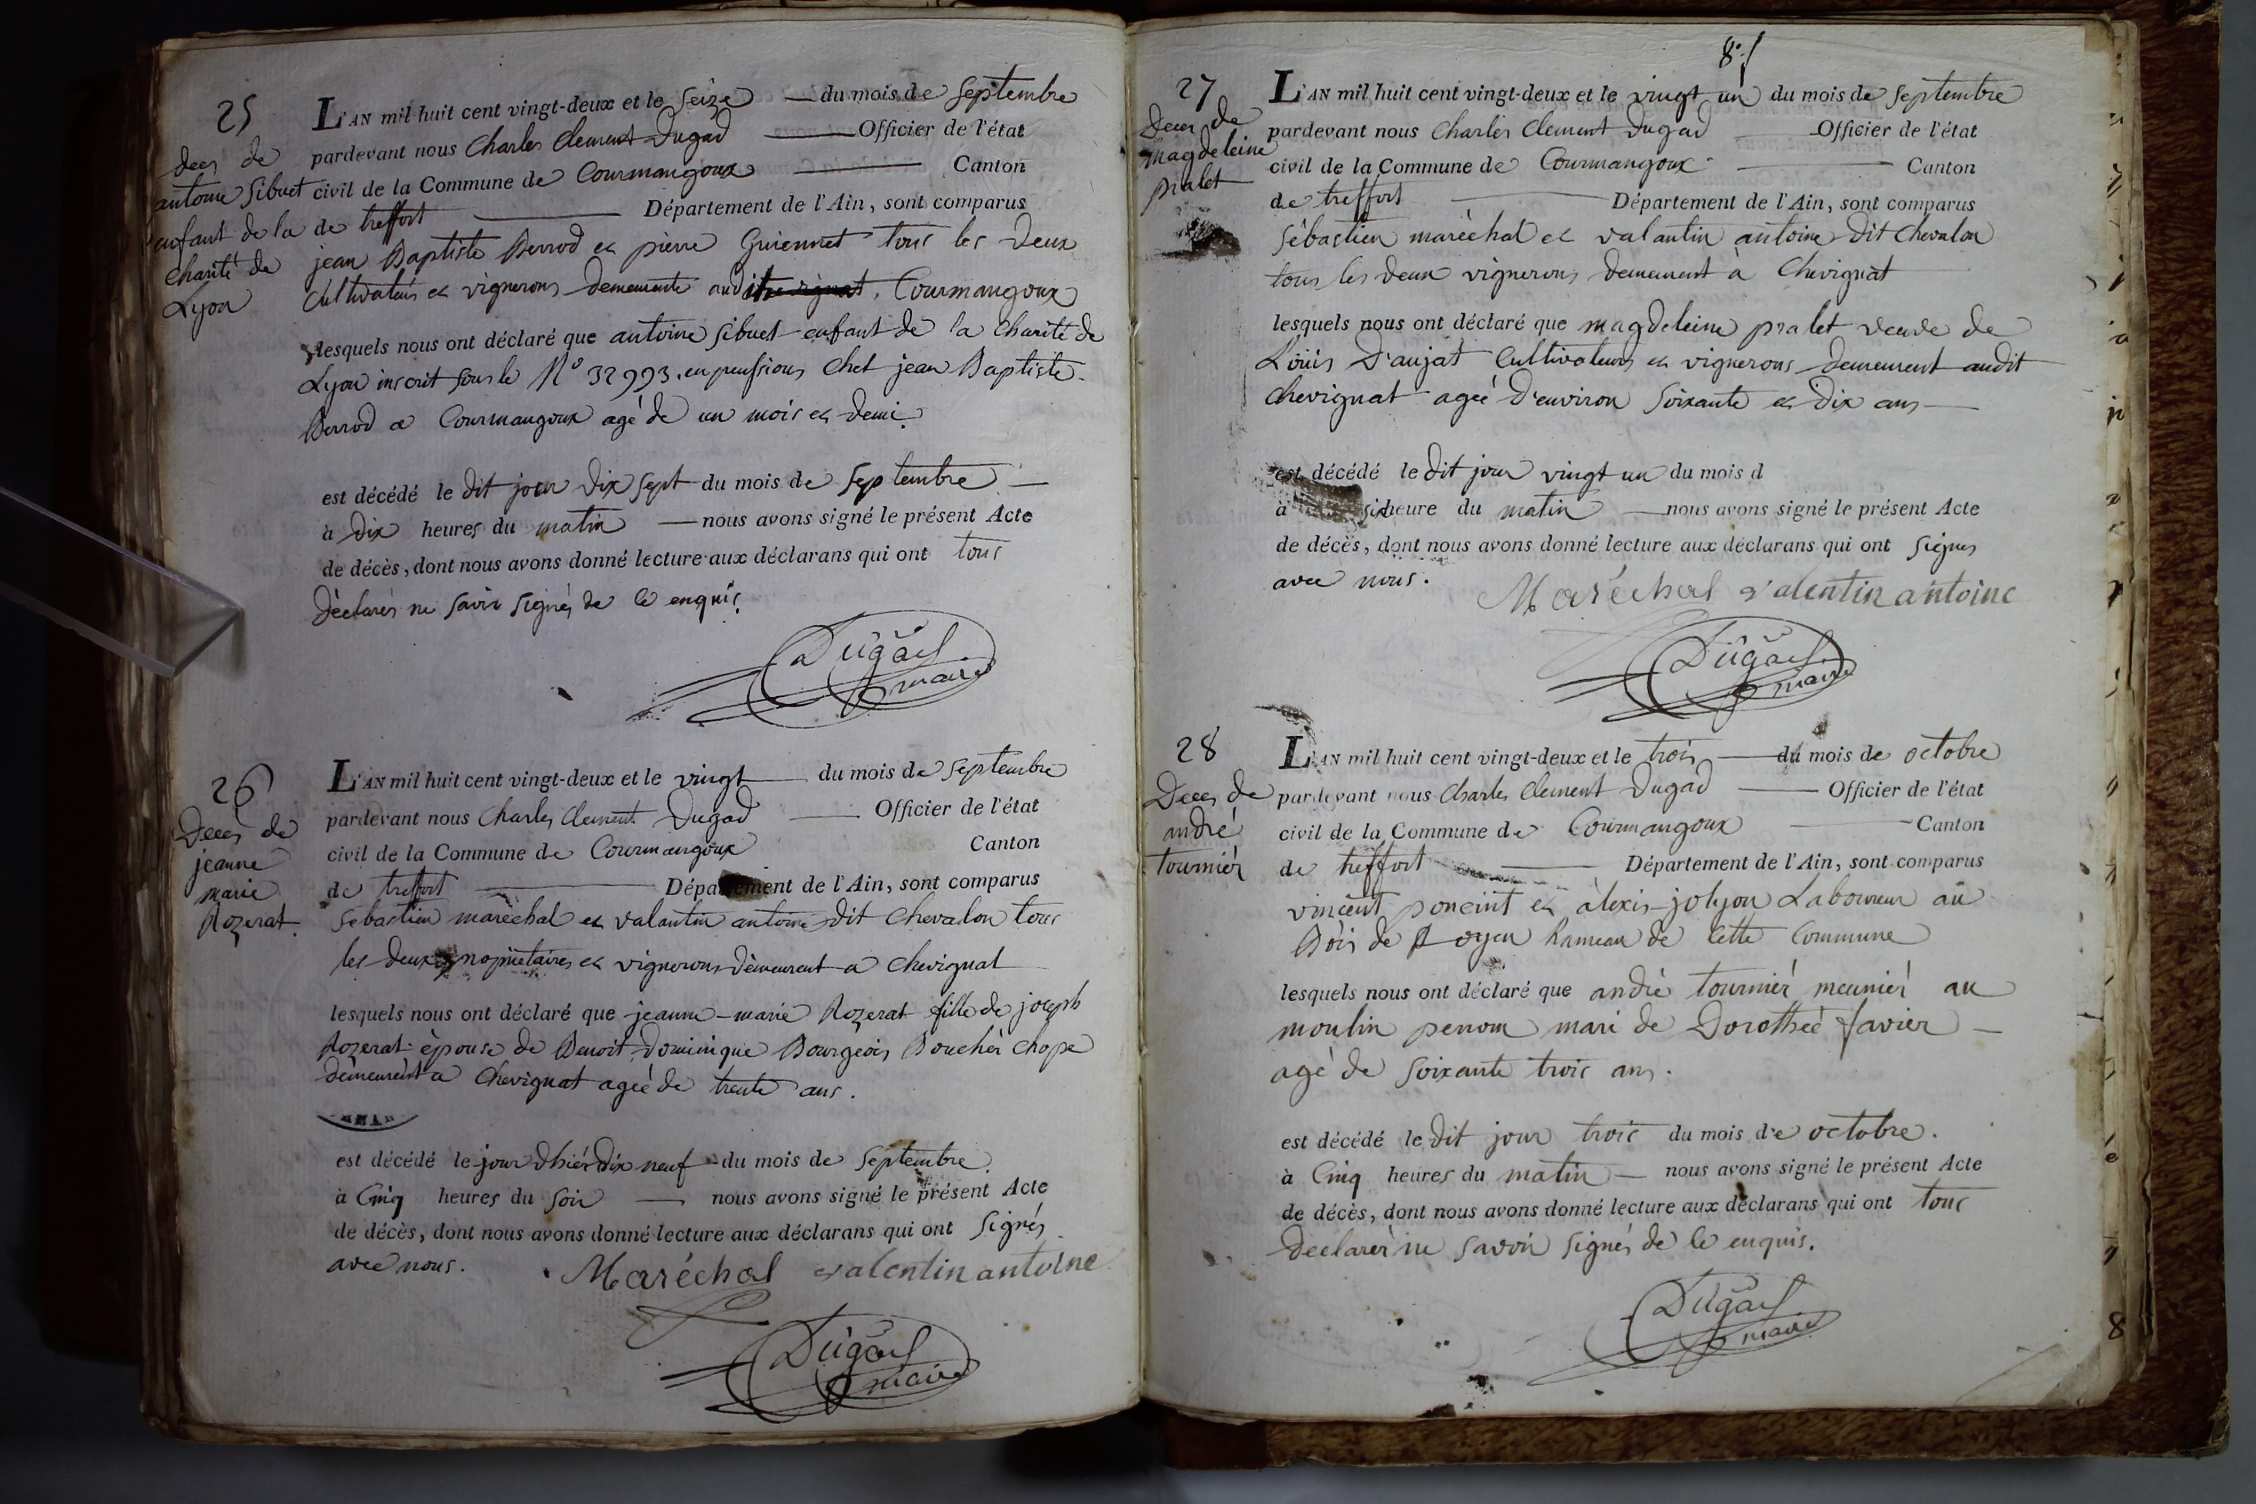 25
deces de
antoine Sibuet
enfant de la
charité de
Lyon
L'AN mil huit cent vingt-deux et le seize du mois de Septembre
pardevant nous Charles Clement Dugad Officier de l'état
civil de la Commune de Courmangoux Canton
de treffort Département de l'Ain, sont comparus
jean Baptiste Berrod et pierre Guiennet tous les deux
Cultivateurs et vignerons demeurants audit Courmangoux
lesquels nous ont déclaré que antoine Sibuet enfant de la charité de
Lyon inscrit sous le N° 32993. en penssions chet jean Baptiste
Berrod a Courmangoux agé de un mois et demi.
est décédé le dit jour dix sept du mois de Septembre
à dix heures du matin nous avons signé le présent Acte
de décès, dont nous avons donné lecture aux déclarans qui ont tous
déclarés ne savoir signés de ce enquis.
Dugad
maire
26
Deces de
jeanne
marie
Rozerat.
L'AN mil huit cent vingt-deux et le vingt du mois de Septembre
pardevant nous Charles Clement Dugad Officier de l'état
civil de la Commune de Courmangoux Canton
de treffort Département de l'Ain, sont comparus
Sebastien maréchal et valantin antoine dit chevalon tous
les deux propriétaires et vignerons demeurent a chevignat
lesquels nous ont déclaré que jeanne-marie Rozerat fille de joseph
Rozerat épouse de Benoit dominique Bourgeois Boucher chope
demeurent a Chevignat ageé de trente ans.
est décédé le jour dhier dix neuf du mois de Septembre.
à Cinq heures du soir nous avons signé le présent Acte
de décès, dont nous avons donné lecture aux déclarans qui ont signés
avec nous. Maréchal valentin antoine
Dugad
maire
8.
27
Deces de
magdeleine
pralet
L'AN mil huit cent vingt-deux et le vingt un du mois de Septembre
pardevant nous Charles Clement Dugad Officier de l'état
civil de la Commune de Courmangoux Canton
de treffort Département de l'Ain, sont comparus
Sébastien maréchal et valantin antoine dit chevalon
tous les deux vignerons demeurent à Chevignat
lesquels nous ont déclaré que magdeleine pralet veuve de
Loüis D'aujat Cultivateurs et vignerons demeurent audit
chevignat ageé d'environ soixante et dix ans
est décédé le dit jour vingt un du mois d
à six heure du matin nous avons signé le présent Acte
de décès, dont nous avons donné lecture aux déclarans qui ont signes
avec nous. Maréchal valentin antoine
Dugad
maire
28
Deces de
andré
tournier
L'AN mil huit cent vingt-deux et le trois du mois de octobre
pardevant nous Charles Clement Dugad Officier de l'état
civil de la Commune de Courmangoux Canton
de treffort Département de l'Ain, sont comparus
vincent poncint et aléxis jolyon Laboureur au
Bois de hameau de Cette Commune
lesquels nous ont déclaré que andré tournier meunier au
moulin penom mari de Dorotheé favier
agé de soixante trois ans.
est décédé le dit jour trois du mois de octobre.
à Cinq heures du matin nous avons signé le présent Acte
de décès, dont nous avons donné lecture aux déclarans qui ont tous
declarer ne savoir signés de ce enquis.
Dugad
maire